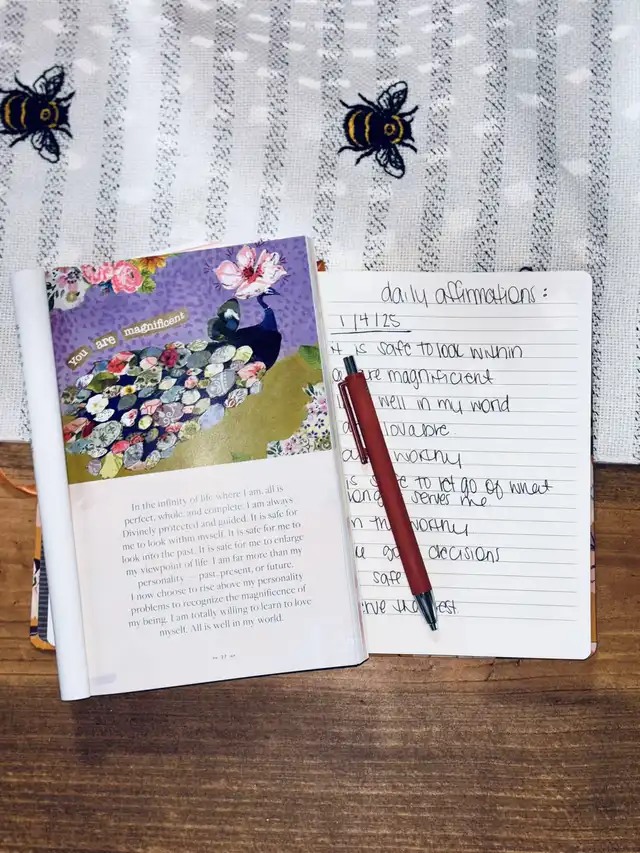 you are magnificent
In the infinity of life where I am, all is
perfect, whole, and complete. I am always
Divinely protected and guided. It is safe for
me to look within myself. It is safe for me to
look into the past. It is safe for me to enlarge
my viewpoint of life. I am far more than my
personality — past, present, or future.
I now choose to rise above my personality
problems to recognize the magnificence of
my being. I am totally willing to learn to love
myself. All is well in my world.
37
daily affirmations:
1/4/25
is safe to look within
magnificent
well in my world
lovable
worthy
safe to let go of what
serves me
worthy
decisions
safe